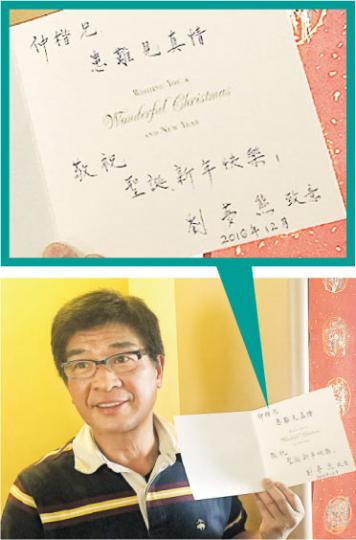 仲楷兄
患難見真情
WISHING YOU A
Wonderful Christmas
AND NEW YEAR
敬祝
聖誕、新年快樂！
劉夢熊 致意
2010年12月
仲楷兄
患難見真情
Wonderful Christmas
敬祝
聖誕新年快樂
劉夢熊 致意